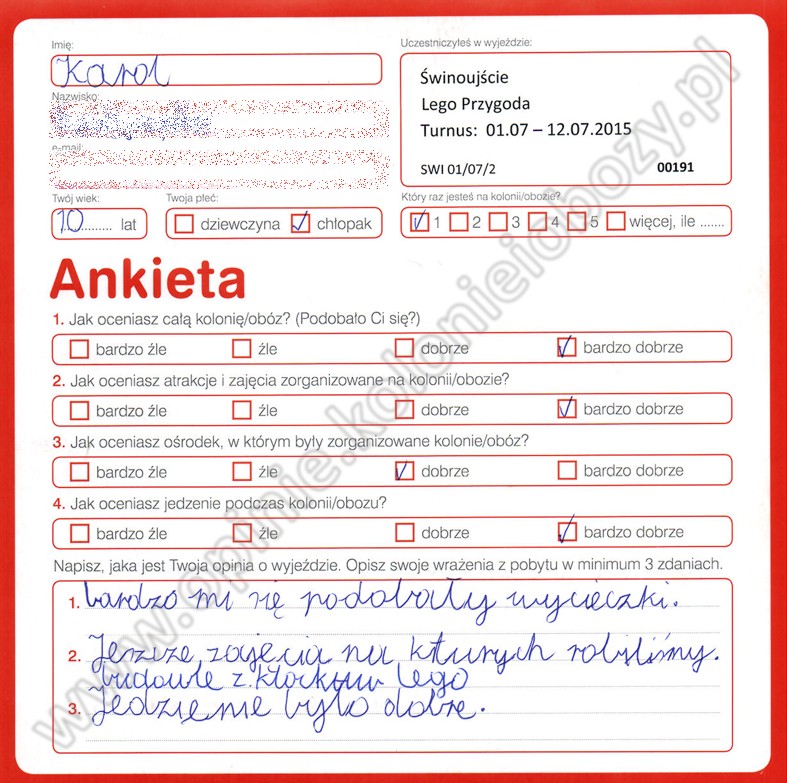 Imię:
Karol
Nazwisko:
e-mail:
Twój wiek:
10........ lat
Twoja płeć:
dziewczyna chłopak
Uczestniczyłeś w wyjeździe:
Świnoujście
Lego Przygoda
Turnus: 01.07 – 12.07.2015
SWI 01/07/2 00191
Który raz jesteś na kolonii/obozie?
1 2 3 4 5 więcej, ile .......
Ankieta
1. Jak oceniasz całą kolonię/obóz? (Podobało Ci się?)
bardzo źle źle dobrze bardzo dobrze
2. Jak oceniasz atrakcje i zajęcia zorganizowane na kolonii/obozie?
bardzo źle źle dobrze bardzo dobrze
3. Jak oceniasz ośrodek, w którym były zorganizowane kolonie/obóz?
bardzo źle źle dobrze bardzo dobrze
4. Jak oceniasz jedzenie podczas kolonii/obozu?
bardzo źle źle dobrze bardzo dobrze
Napisz, jaka jest Twoja opinia o wyjeździe. Opisz swoje wrażenia z pobytu w minimum 3 zdaniach.
1. bardzo mi się podobały wycieczki.
2. Jeszcze zajęcia na kturych robiliśmy.
budowle z klockuw Lego
3. Jedzienie było dobre.
www.opinie.kolonieiobozy.pl